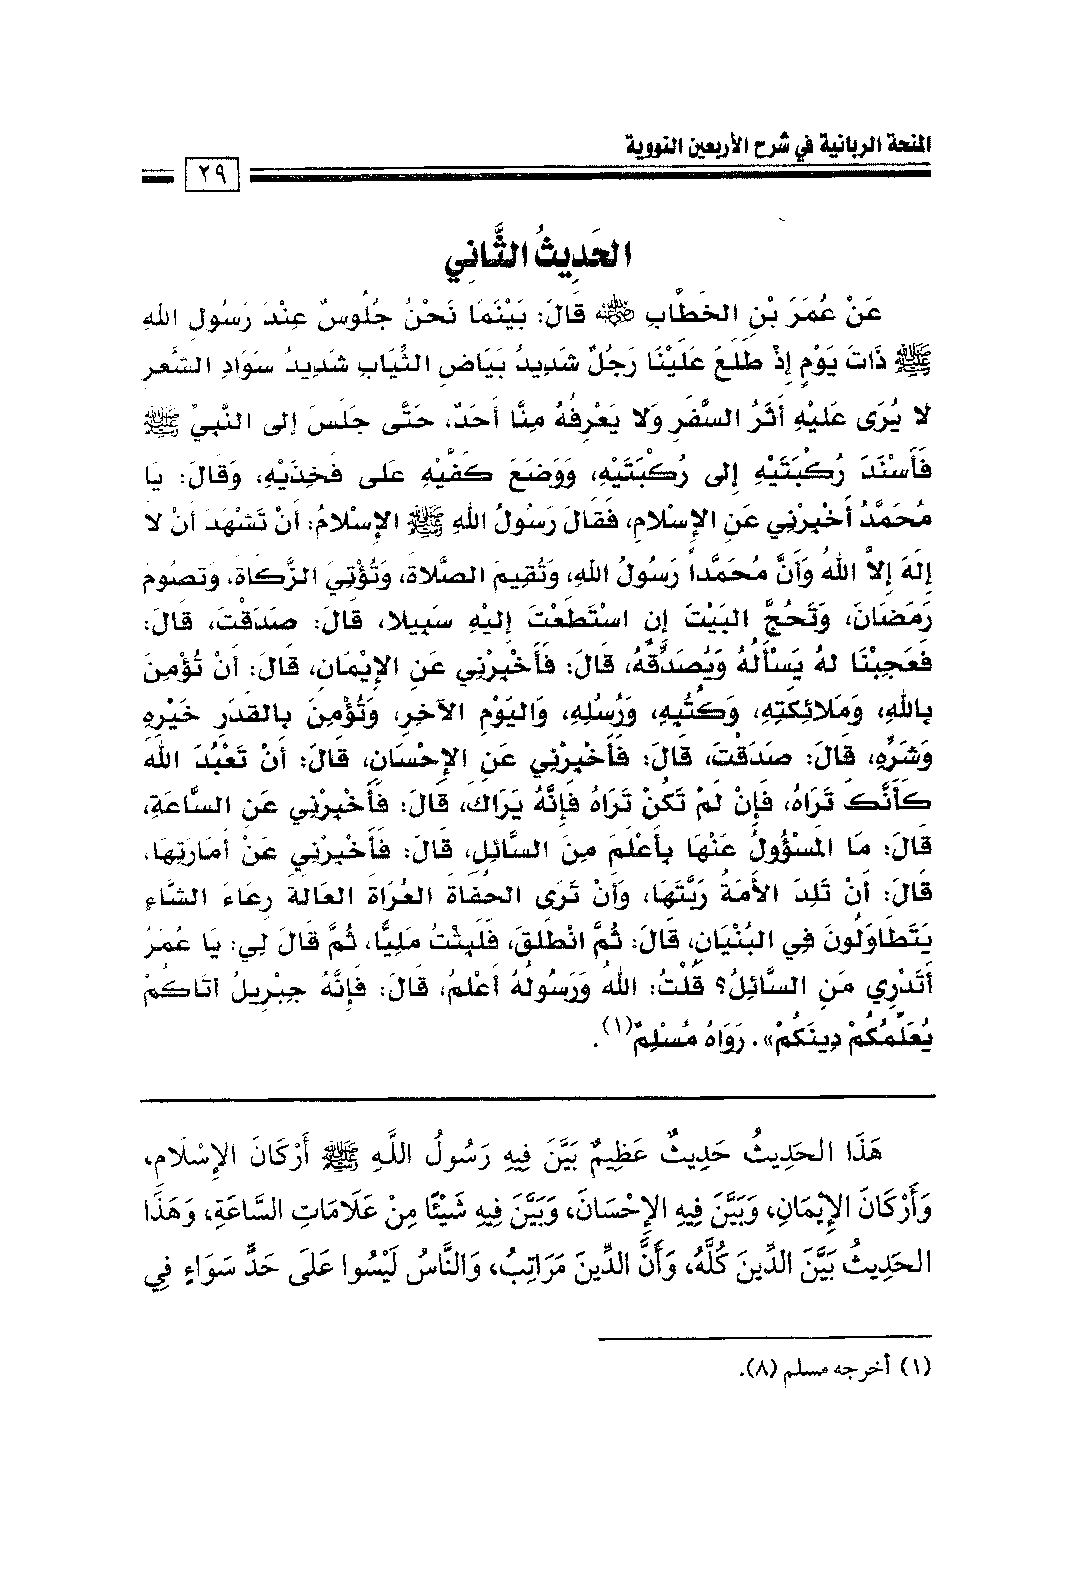 المنحة الربانية في شرح الأربعين النووية
٢٩
الحَدِيثُ الثَّانِي
عَنْ عُمَرَ بْنِ الخَطَّابِ ﷺ قَالَ: بَيْنَمَا نَحْنُ جُلُوسٌ عِنْدَ رَسُولِ اللهِ
ﷺ ذَاتَ يَوْمٍ إِذْ طَلَعَ عَلَيْنَا رَجُلٌ شَدِيدُ بَيَاضِ الثِّيَابِ شَدِيدُ سَوَادِ الشَّعرِ
لا يُرَى عَلَيْهِ أَثَرُ السَّفَرِ وَلا يَعْرِفُهُ مِنَّا أَحَدٌ، حَتَّى جَلَسَ إلى النَّبِيِّ ﷺ
فَأَسْنَدَ رُكْبَتَيْهِ إلى رُكْبَتَيْهِ، وَوَضَعَ كَفَّيْهِ عَلى فَخِذَيْهِ، وَقَالَ: يا
مُحَمَّدُ أَخْبِرْنِي عَنِ الإِسْلامِ، فَقَالَ رَسُولُ اللهِ ﷺ الإِسْلامُ: أَنْ تَشْهَدَ أَنْ لا
إِلَهَ إِلاَّ اللهُ وَأَنَّ مُحَمَّداً رَسُولُ اللهِ، وَتُقِيمَ الصَّلاةَ، وَتُؤْتِيَ الزَّكَاةَ، وَتَصُومَ
رَمَضَانَ، وَتَحُجَّ البَيْتَ إِنِ اسْتَطَعْتَ إِلَيْهِ سَبِيلا، قَالَ: صَدَقْتَ، قَالَ:
فَعَجِبْنَا لَهُ يَسْأَلُهُ وَيُصَدِّقُهُ، قَالَ: فَأَخْبِرْنِي عَنِ الإِيْمَانِ، قَالَ: أَنْ تُؤْمِنَ
بِاللهِ، وَمَلائِكَتِهِ، وَكُتُبِهِ، وَرُسُلِهِ، وَاليَوْمِ الآخِرِ، وَتُؤْمِنَ بِالقَدَرِ خَيْرِهِ
وَشَرِّهِ، قَالَ: صَدَقْتَ، قَالَ: فَأَخْبِرْنِي عَنِ الإِحْسَانِ، قَالَ: أَنْ تَعْبُدَ اللهَ
كَأَنَّكَ تَرَاهُ، فَإِنْ لَمْ تَكُنْ تَرَاهُ فَإِنَّهُ يَرَاكَ، قَالَ: فَأَخْبِرْنِي عَنِ السَّاعَةِ،
قَالَ: مَا المَسْؤُولُ عَنْهَا بِأَعْلَمَ مِنَ السَّائِلِ، قَالَ: فَأَخْبِرْنِي عَنْ أَمَارَتِهَا،
قَالَ: أَنْ تَلِدَ الأَمَةُ رَبَّتَهَا، وَأَنْ تَرَى الحُفَاةَ العُرَاةَ العَالَةَ رِعَاءَ الشَّاءِ
يَتَطَاوَلُونَ فِي البُنْيَانِ، قَالَ: ثُمَّ انْطَلَقَ، فَلَبِثْتُ مَلِيًّا، ثُمَّ قَالَ لِي: يَا عُمَرُ
أَتَدْرِي مَنِ السَّائِلُ؟ قُلْتُ: اللهُ وَرَسُولُهُ أَعْلَمُ، قَالَ: فَإِنَّهُ جِبْرِيلُ أَتَاكُمْ
يُعَلِّمُكُمْ دِينَكُمْ». رَوَاهُ مُسْلِمٌ(١).
هَذَا الحَدِيثُ حَدِيثٌ عَظِيمٌ بَيَّنَ فِيهِ رَسُولُ اللَّهِ ﷺ أَرْكَانَ الإِسْلَامِ،
وَأَرْكَانَ الإِيْمَانِ، وَبَيَّنَ فِيهِ الإِحْسَانَ، وَبَيَّنَ فِيهِ شَيْئًا مِنْ عَلَامَاتِ السَّاعَةِ، وَهَذَا
الحَدِيثُ بَيَّنَ الدِّينَ كُلَّهُ، وَأَنَّ الدِّينَ مَرَاتِبُ، وَالنَّاسُ لَيْسُوا عَلَى حَدٍّ سَوَاءٍ فِي
(١) أخرجه مسلم (٨).